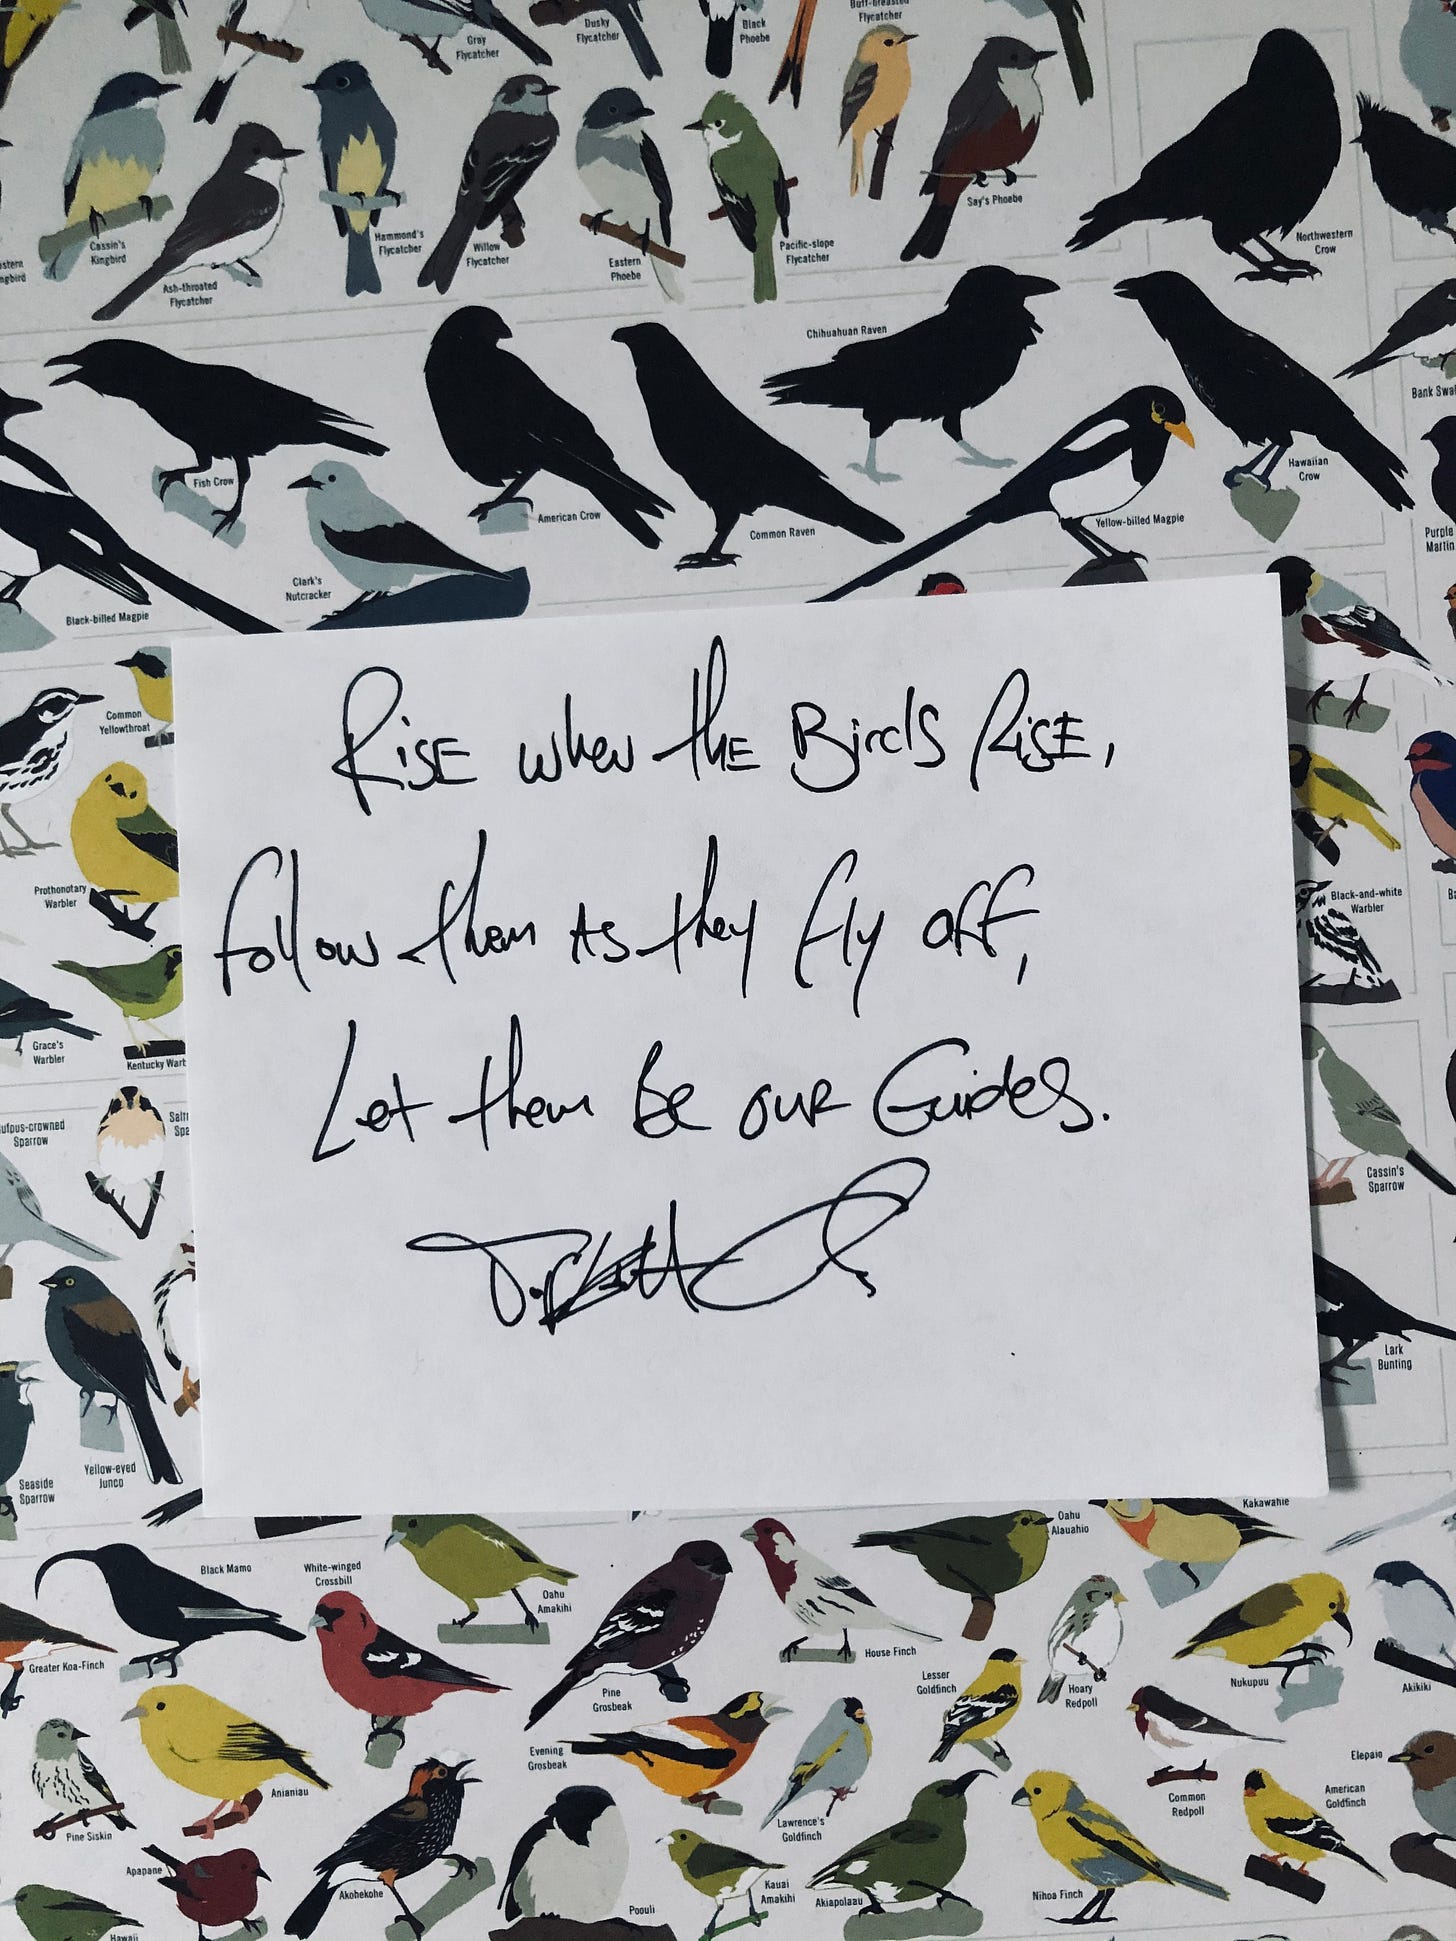 Buff-breasted
Flycatcher
Gray
Flycatcher
Dusky
Flycatcher
Black
Phoebe
Cassin's
Kingbird
Ash-throated
Flycatcher
Hammond's
Flycatcher
Willow
Flycatcher
Eastern
Phoebe
Pacific-slope
Flycatcher
Say's Phoebe
Northwestern
Crow
Chihuahuan Raven
Fish Crow
American Crow
Common Raven
Yellow-billed Magpie
Hawaiian
Crow
Clark's
Nutcracker
Black-billed Magpie
Purple
Martin
Rise when the Birds Rise,
Follow them As they fly off,
Let them Be our Guides.
Common
Yellowthroat
Prothonotary
Warbler
Black-and-white
Warbler
Grace's
Warbler
Kentucky Warb
Sparrow
Cassin's
Sparrow
Lark
Bunting
Seaside
Sparrow
Yellow-eyed
Junco
Kakawahie
Oahu
Alauahio
Black Mamo
White-winged
Crossbill
Oahu
Amakihi
House Finch
Greater Koa-Finch
Pine
Grosbeak
Lesser
Goldfinch
Hoary
Redpoll
Nukupuu
Akikiki
Evening
Grosbeak
Anianiau
Pine Siskin
Lawrence's
Goldfinch
Common
Redpoll
American
Goldfinch
Elepaio
Apapane
Akohekohe
Poouli
Kauai
Amakihi
Akiapolaau
Nihoa Finch
Hawaii